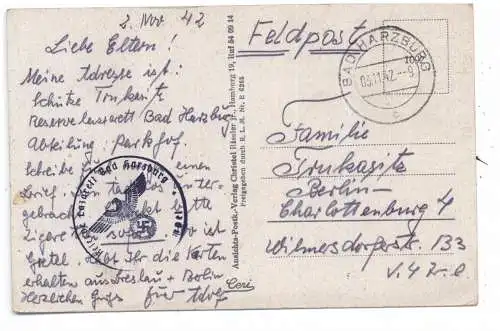 2. Nov 42
Liebe Eltern!
Meine Adresse ist:
Schütze Trukasitz
Reservelazarett Bad Harzburg
Abteilung: Parkhof
Schreibt einen
Brief.
gebracht bitte
ist
Gretel. Habt Ihr die Karten
erhalten aus Breslau + Berlin
Herzlichen Gruß
Ansichts-Postk.-Verlag Christel Rässler jr., Hamburg 19, Ruf 54 09 14
Freigegeben durch R. L. M. Nr. E 6265
Cere
Feldpost
BAD HARZBURG
03.11.42.-9
Familie
Trukasitz
Berlin-
Charlottenburg 4
Wilmersdorferstr. 133
v. 4 Tr. l.
Bad Harzburg